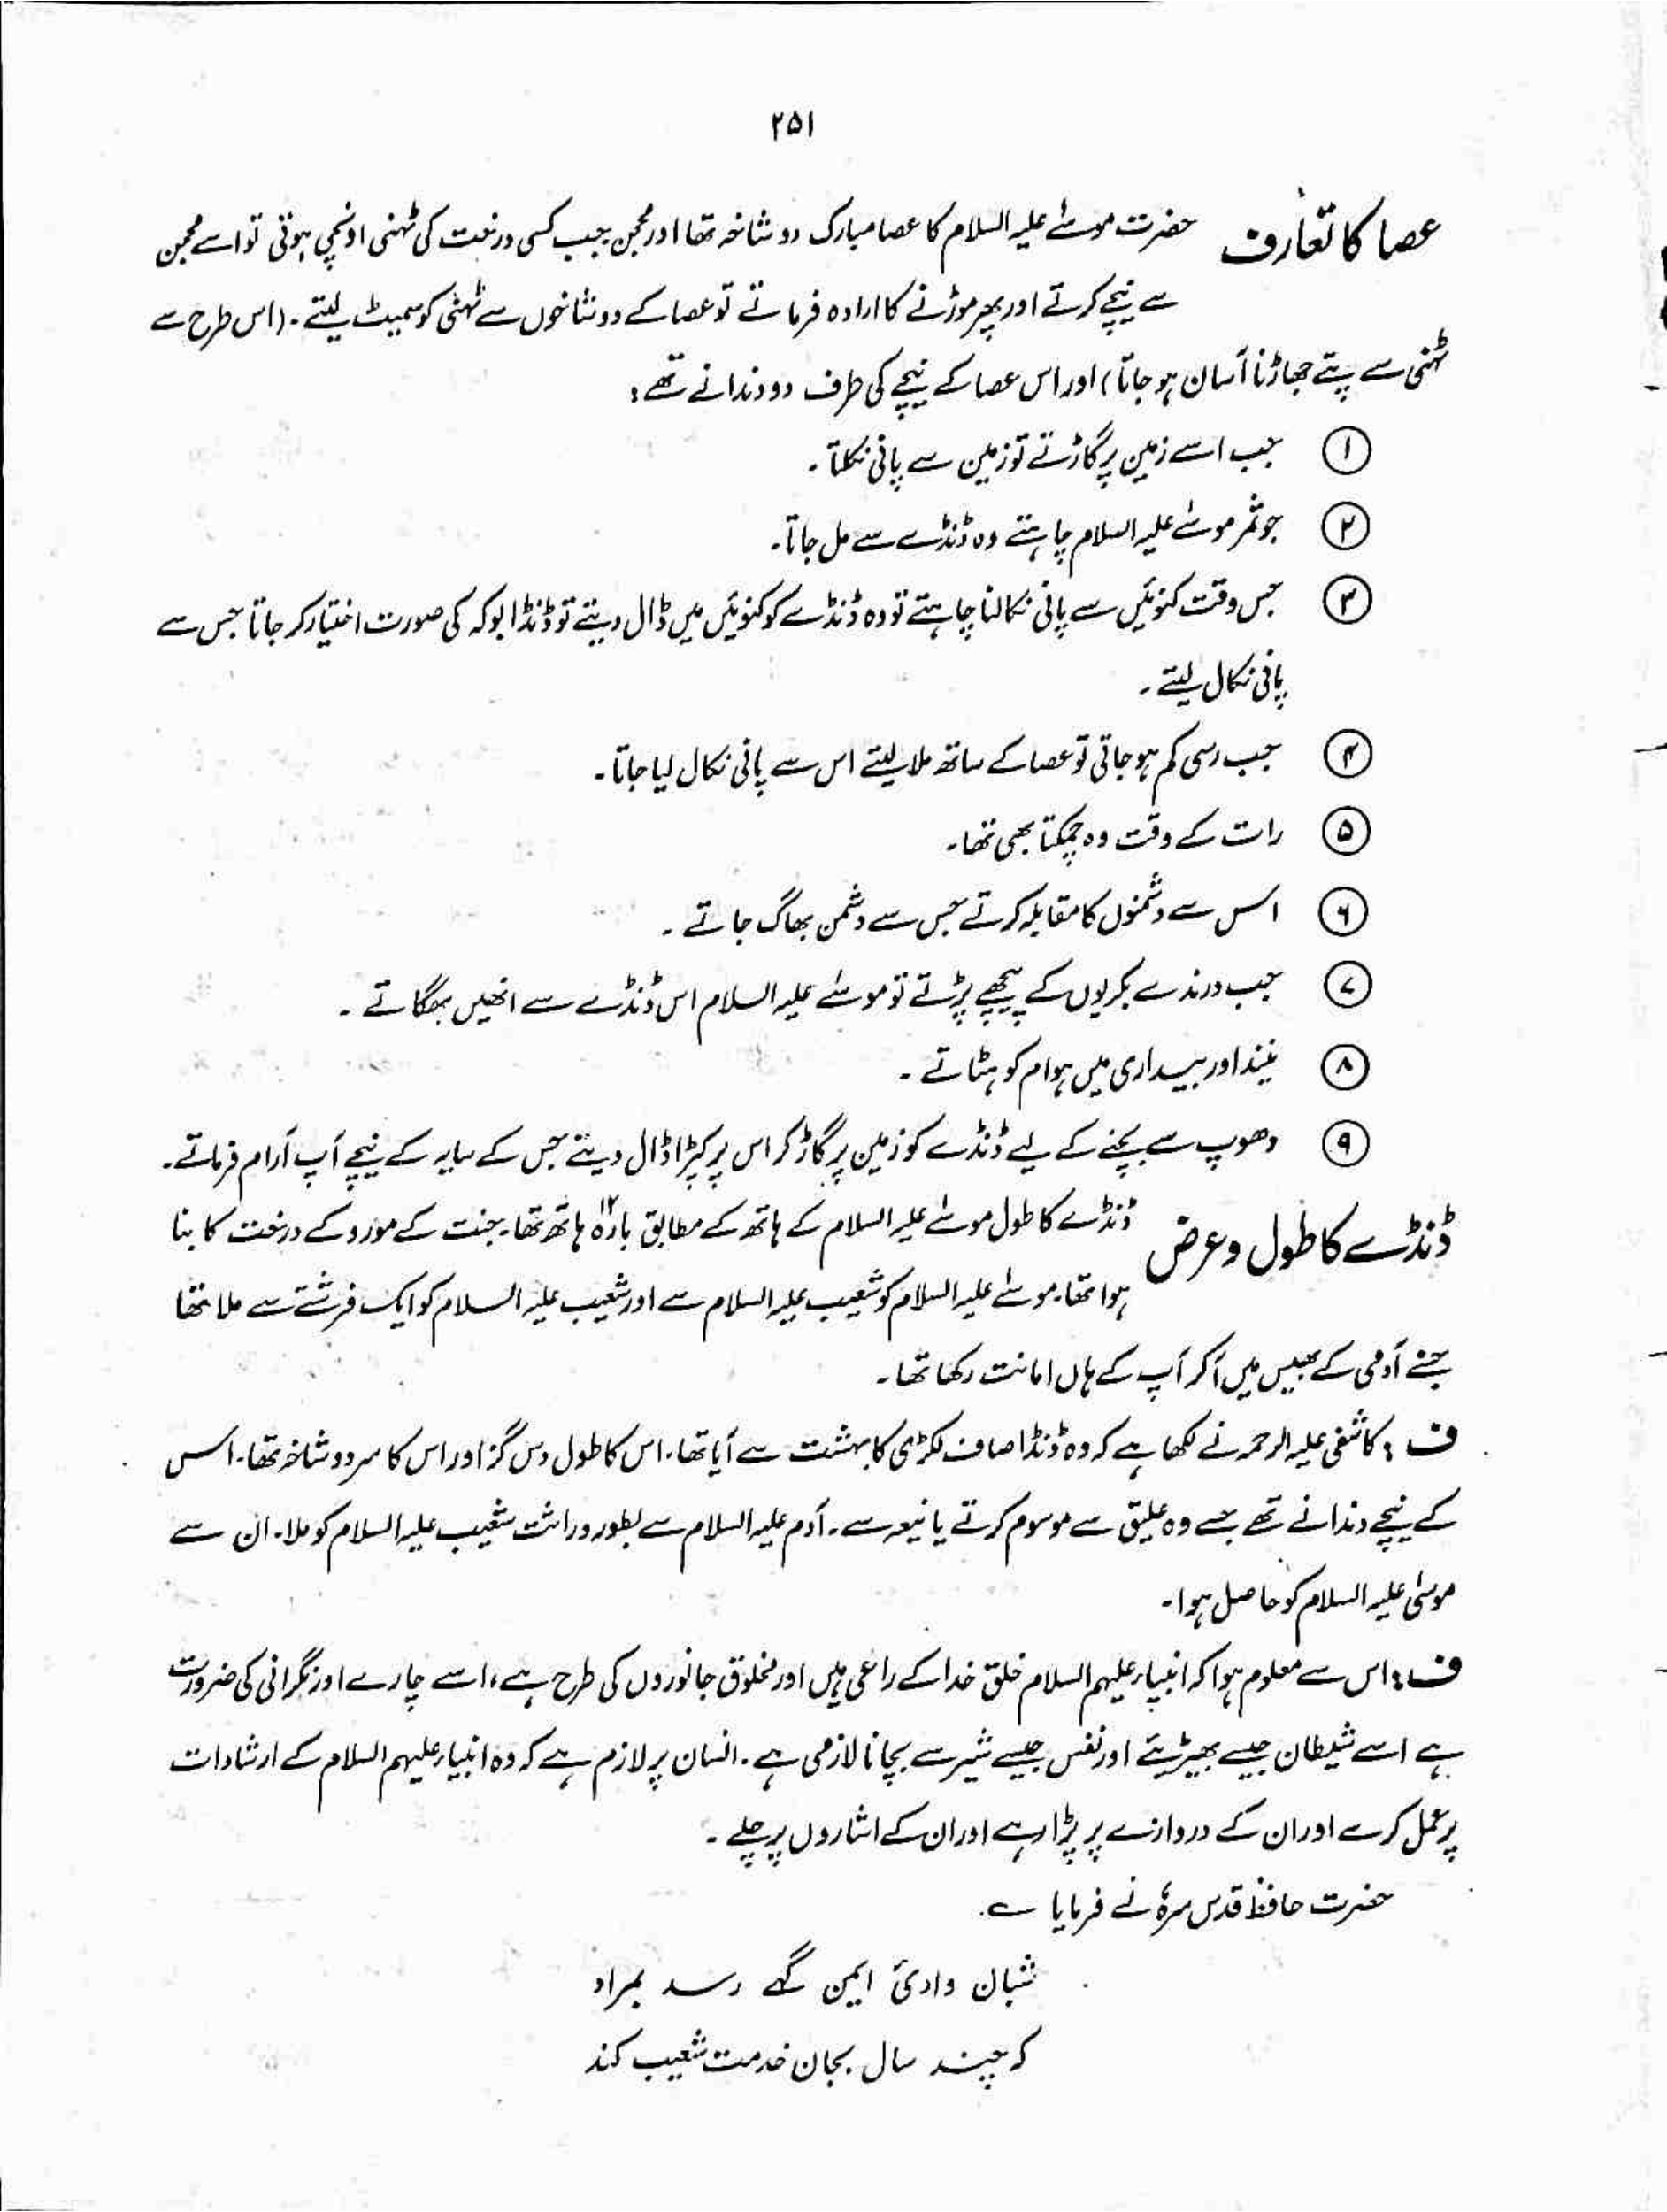 ۲۵۱
عصا کا تعارف حضرت موسےٰ علیہ السلام کا عصا مبارک دو شاخہ تھا اور محجن جب کسی درخت کی ٹہنی اونچی ہوتی تو اسے محجن
سے نیچے کرتے اور پھر موڑنے کا ارادہ فرماتے تو عصا کے دو شاخوں سے ٹہنی کو سمیٹ لیتے۔ (اس طرح سے
ٹہنی سے پتے جھاڑنا آسان ہو جاتا) اور اس عصا کے نیچے کی طرف دو دندانے تھے:
① جب اسے زمین پر گاڑتے تو زمین سے پانی نکلتا۔
② جو ثمر موسےٰ علیہ السلام چاہتے وہ ڈنڈے سے مل جاتا۔
③ جس وقت کنوئیں سے پانی نکالنا چاہتے تو وہ ڈنڈے کو کنوئیں میں ڈال دیتے تو ڈنڈا بوکہ کی صورت اختیار کر جاتا جس سے
پانی نکال لیتے۔
④ جب رسی کم ہو جاتی تو عصا کے ساتھ ملا لیتے اس سے پانی نکال لیا جاتا۔
⑤ رات کے وقت وہ چمکتا بھی تھا۔
⑥ اس سے دشمنوں کا مقابلہ کرتے جس سے دشمن بھاگ جاتے۔
⑦ جب درندے بکریوں کے پیچھے پڑتے تو موسےٰ علیہ السلام اس ڈنڈے سے انھیں بھگاتے۔
⑧ نیند اور بیداری میں ہوام کو ہٹاتے۔
⑨ دھوپ سے بچنے کے لیے ڈنڈے کو زمین پر گاڑ کر اس پر کپڑا ڈال دیتے جس کے سایہ کے نیچے آپ آرام فرماتے۔
ڈنڈے کا طول و عرض ڈنڈے کا طول موسےٰ علیہ السلام کے ہاتھ کے مطابق بارہ ۱۲ ہاتھ تھا۔ جنت کے مورد کے درخت کا بنا
ہوا تھا۔ موسےٰ علیہ السلام کو شعیب علیہ السلام سے اور شعیب علیہ السلام کو ایک فرشتے سے ملا تھا
جنے آدمی کے بھیس میں آکر آپ کے ہاں امانت رکھا تھا۔
ف : کاشفی علیہ الرحمہ نے لکھا ہے کہ وہ ڈنڈا صاف لکڑی کا بہشت سے آیا تھا۔ اس کا طول دس گز اور اس کا سر دو شاخہ تھا۔ اس
کے نیچے دندانے تھے جسے وہ علیق سے موسوم کرتے یا نیعہ سے۔ آدم علیہ السلام سے بطور وراثت شعیب علیہ السلام کو ملا۔ ان سے
موسیٰ علیہ السلام کو حاصل ہوا۔
ف : اس سے معلوم ہوا کہ انبیاء علیہم السلام خلق خدا کے راعی ہیں اور مخلوق جانوروں کی طرح ہے، اسے چارے اور نگرانی کی ضرورت
ہے اسے شیطان جیسے بھیڑیئے اور نفس جیسے شیر سے بچانا لازمی ہے۔ انسان پر لازم ہے کہ وہ انبیاء علیہم السلام کے ارشادات
پر عمل کرے اور ان کے دروازے پر پڑا رہے اور ان کے اشاروں پر چلے۔
حضرت حافظ قدس سرہٗ نے فرمایا ؎
شبان وادیٔ ایمن گہے رسد بمراد
کہ چند سال بجان خدمت شعیب کند